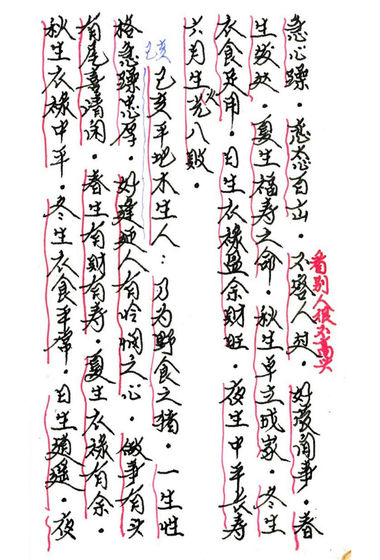 急心躁。态百出。不人。好闲事。春
看别人很不高兴
生发。夏生福寿之命。秋生单立成家。冬生
衣食平用。日生衣禄盈余财旺。夜生中平长寿
六月生火八败。
己亥
己亥平地木生人：乃为野食之猪。一生性
格急躁忠厚。好逢迎人有怜悯之心。做事有头
有尾喜清闲。春生有财有寿。夏生衣禄有余。
秋生衣禄中平。冬生衣食平常。日生逍遥。夜